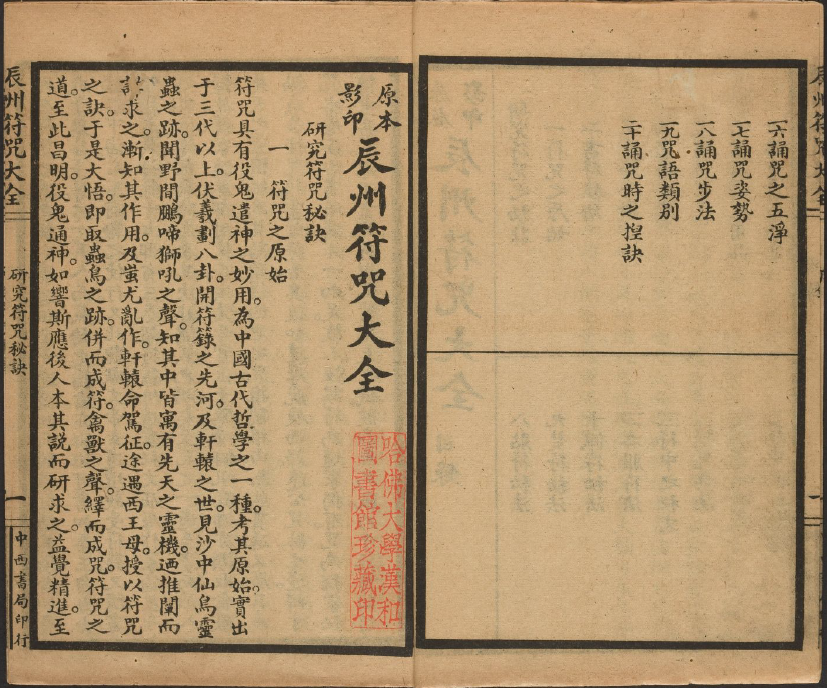 辰州符咒大全
一六誦咒之五淨
一七誦咒姿勢
一八誦咒步法
一九咒語類別
二十誦咒時之揑訣
原本影印
辰州符咒大全
哈佛大學漢和
圖書館珍藏印
研究符咒秘訣
一 符咒之原始
符咒具有役鬼遣神之妙用。為中國古代哲學之一種。考其原始。實出
于三代以上。伏羲劃八卦。開符籙之先河。及軒轅之世。見沙中仙鳥靈
蟲之跡。聞野間鵬啼獅吼之聲。知其中皆寓有先天之靈機。迺推闡而
求之。漸知其作用。及蚩尤亂作。軒轅命駕征。途遇西王母。授以符咒
之訣。于是大悟。即取蟲鳥之跡。併而成符。禽獸之聲。繹而成咒。符咒之
道。至此昌明。役鬼通神。如響斯應。後人本其說而研求之。益覺精進。至
辰州符咒大全
研究符咒秘訣
一
中西書局印行